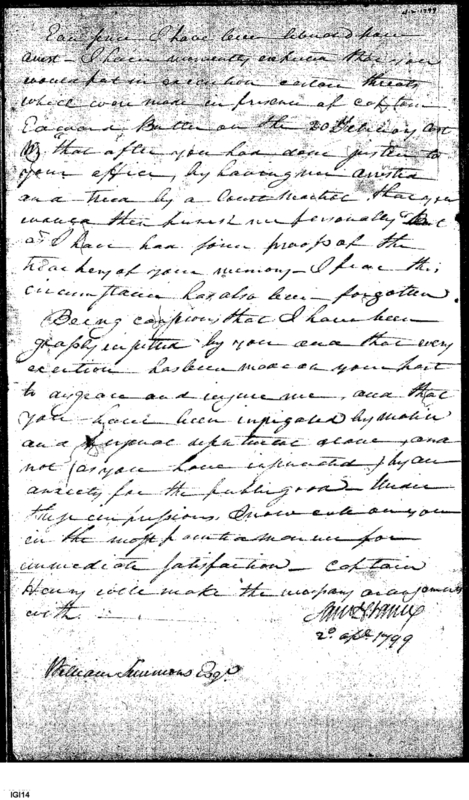 4-2-1799
Ever since I have been released from
arrest - I have momently expected that you
would put in execution certain threats
which were made in presence of captain
Edward Butler on the 20 February last
that after you had done justice to
your office, by having me arrested
and tried by a Court Martial that you
would then punish me personally But
as I have had some proofs of the
treachery of your memory - I fear this
circumstance has also been forgotten.
Being conscious that I have been
grossly insulted by you and that every
exertion has been made on your part
to disgrace and injure me, and that
you have been instigated by malice
and personal alone, and
not (as you have insinuated) by an
anxiety for the public good - Under
these impressions, I now call on you
in the most peremptory manner for
immediate satisfaction - Captain
Henry will make the necessary arrangements
with
2d. apl. 1799
William Simmons Esqr.
IGI14